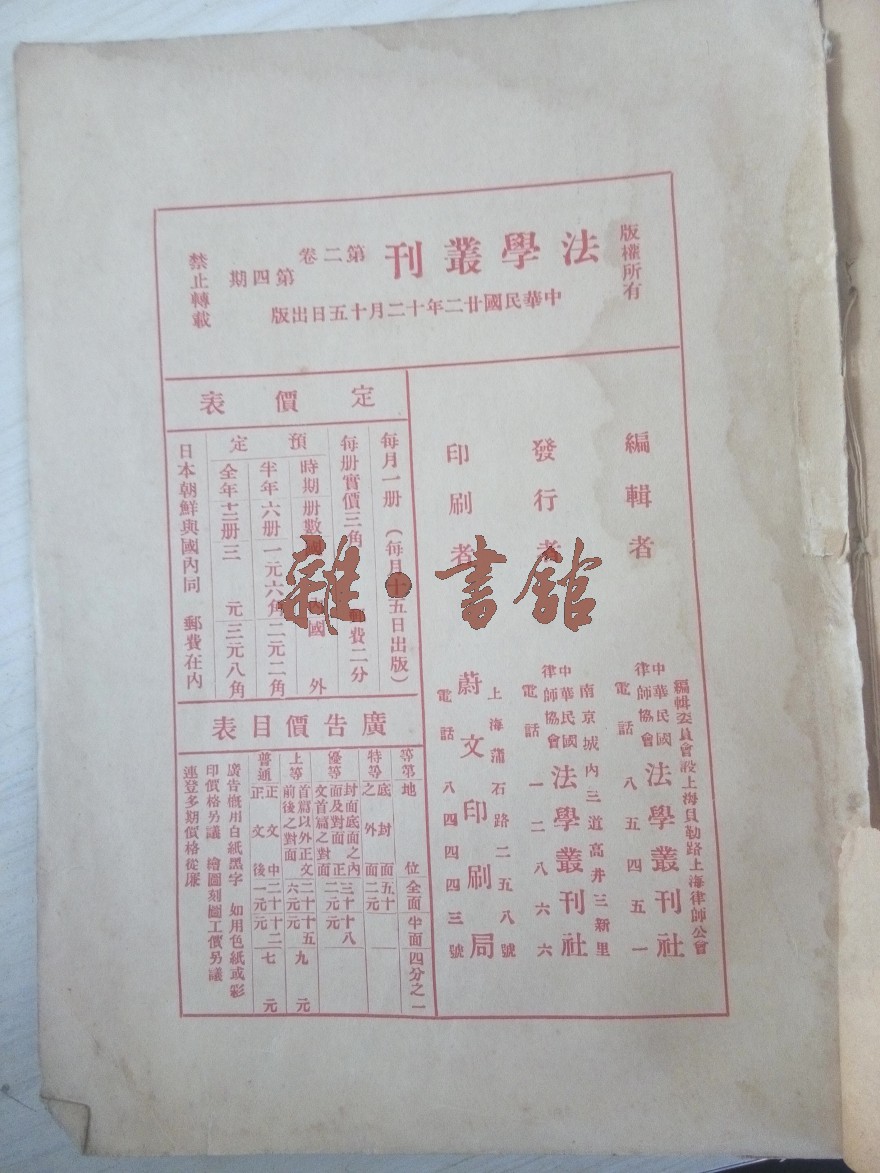 版權所有
法學叢刊
第二卷
第四期
中華民國廿二年十二月十五日出版
禁止轉載
編輯者
編輯委員會設上海貝勒路上海律師公會
中華民國
律師協會
法學叢刊社
電話 八五四五一
發行者
南京城內三道高井三新里
中華民國
律師協會
法學叢刊社
電話 一二八六六
印刷者
上海蒲石路二五八號
蔚文印刷局
電話 八四四四三號
定價表
每月一册（每月十五日出版）
每册實價三角 費二分
預定
時期 册數 國內 國外
半年 六册 一元六角 二元二角
全年 十二册 三元 三元八角
日本朝鮮與國內同 郵費在內
廣告價目表
等第 地位 全面 半面 四分之一
特等 底封面之外面 五十二元
優等 封面底面之內面及對面正文首篇之對面 三十二元 十八元
上等 首篇以外正文前後之對面 二十六元 十五元 九元
普通 正文中正文後 二十一元 十二元 七元
廣告概用白紙黑字 如用色紙或彩
印價格另議 繪圖刻圖工價另議
連登多期價格從廉
雜·書館